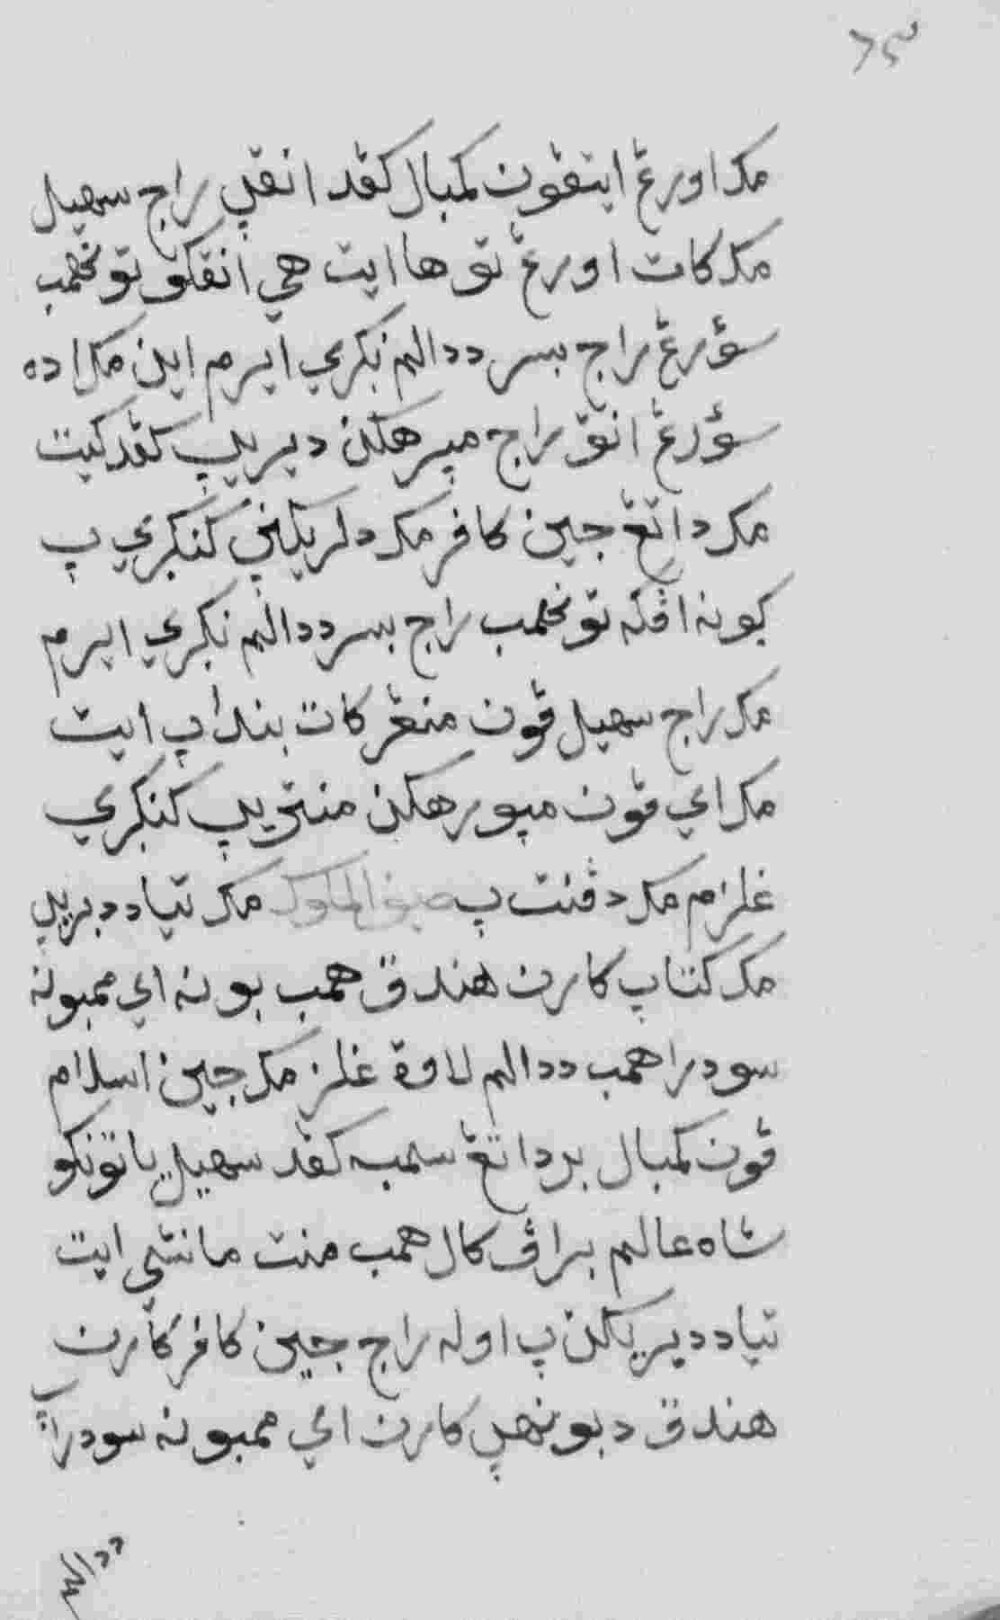 ٦٣
مک اورڠ ايتڤون کمبال کڤد انقي راج سهيل
مک کات اورڠ تو ها ايت هي انقکو تو نحمب
سؤرڠ راج بسر ددالم نکري ايرم اين مک اده
سؤرڠ انق راج ممرهکن ديريڽ کڤد کيت
مک داتڠ جين کافر مک دلريکنڽ کنکري ڽ
بونه اڤکه تو نحمب راج بسر ددالم نکري ايرم
مک راج سهيل ڤون منڠر کات بنداڽ ايت
مک اي ڤون مپورهکن منتريڽ کنکري
غلزم مک دڤنت ڽ صيف الملوک مک تياد دبريڽ
مک کتاڽ کارن هندق همب بونه اي ممبونه
سودرا همب ددالم لاوة غلزم مک جين اسلام
ڤون کمبال برداتڠ سمبه کڤد سهيل يا توانکو
شاه عالم براڤ کال همب منت مانشي ايت
تياد ديريکن ڽ اوله راج جين کافر کارن
هندق دبونهڽ کارن اي ممبونه سودراڽ
ددالم